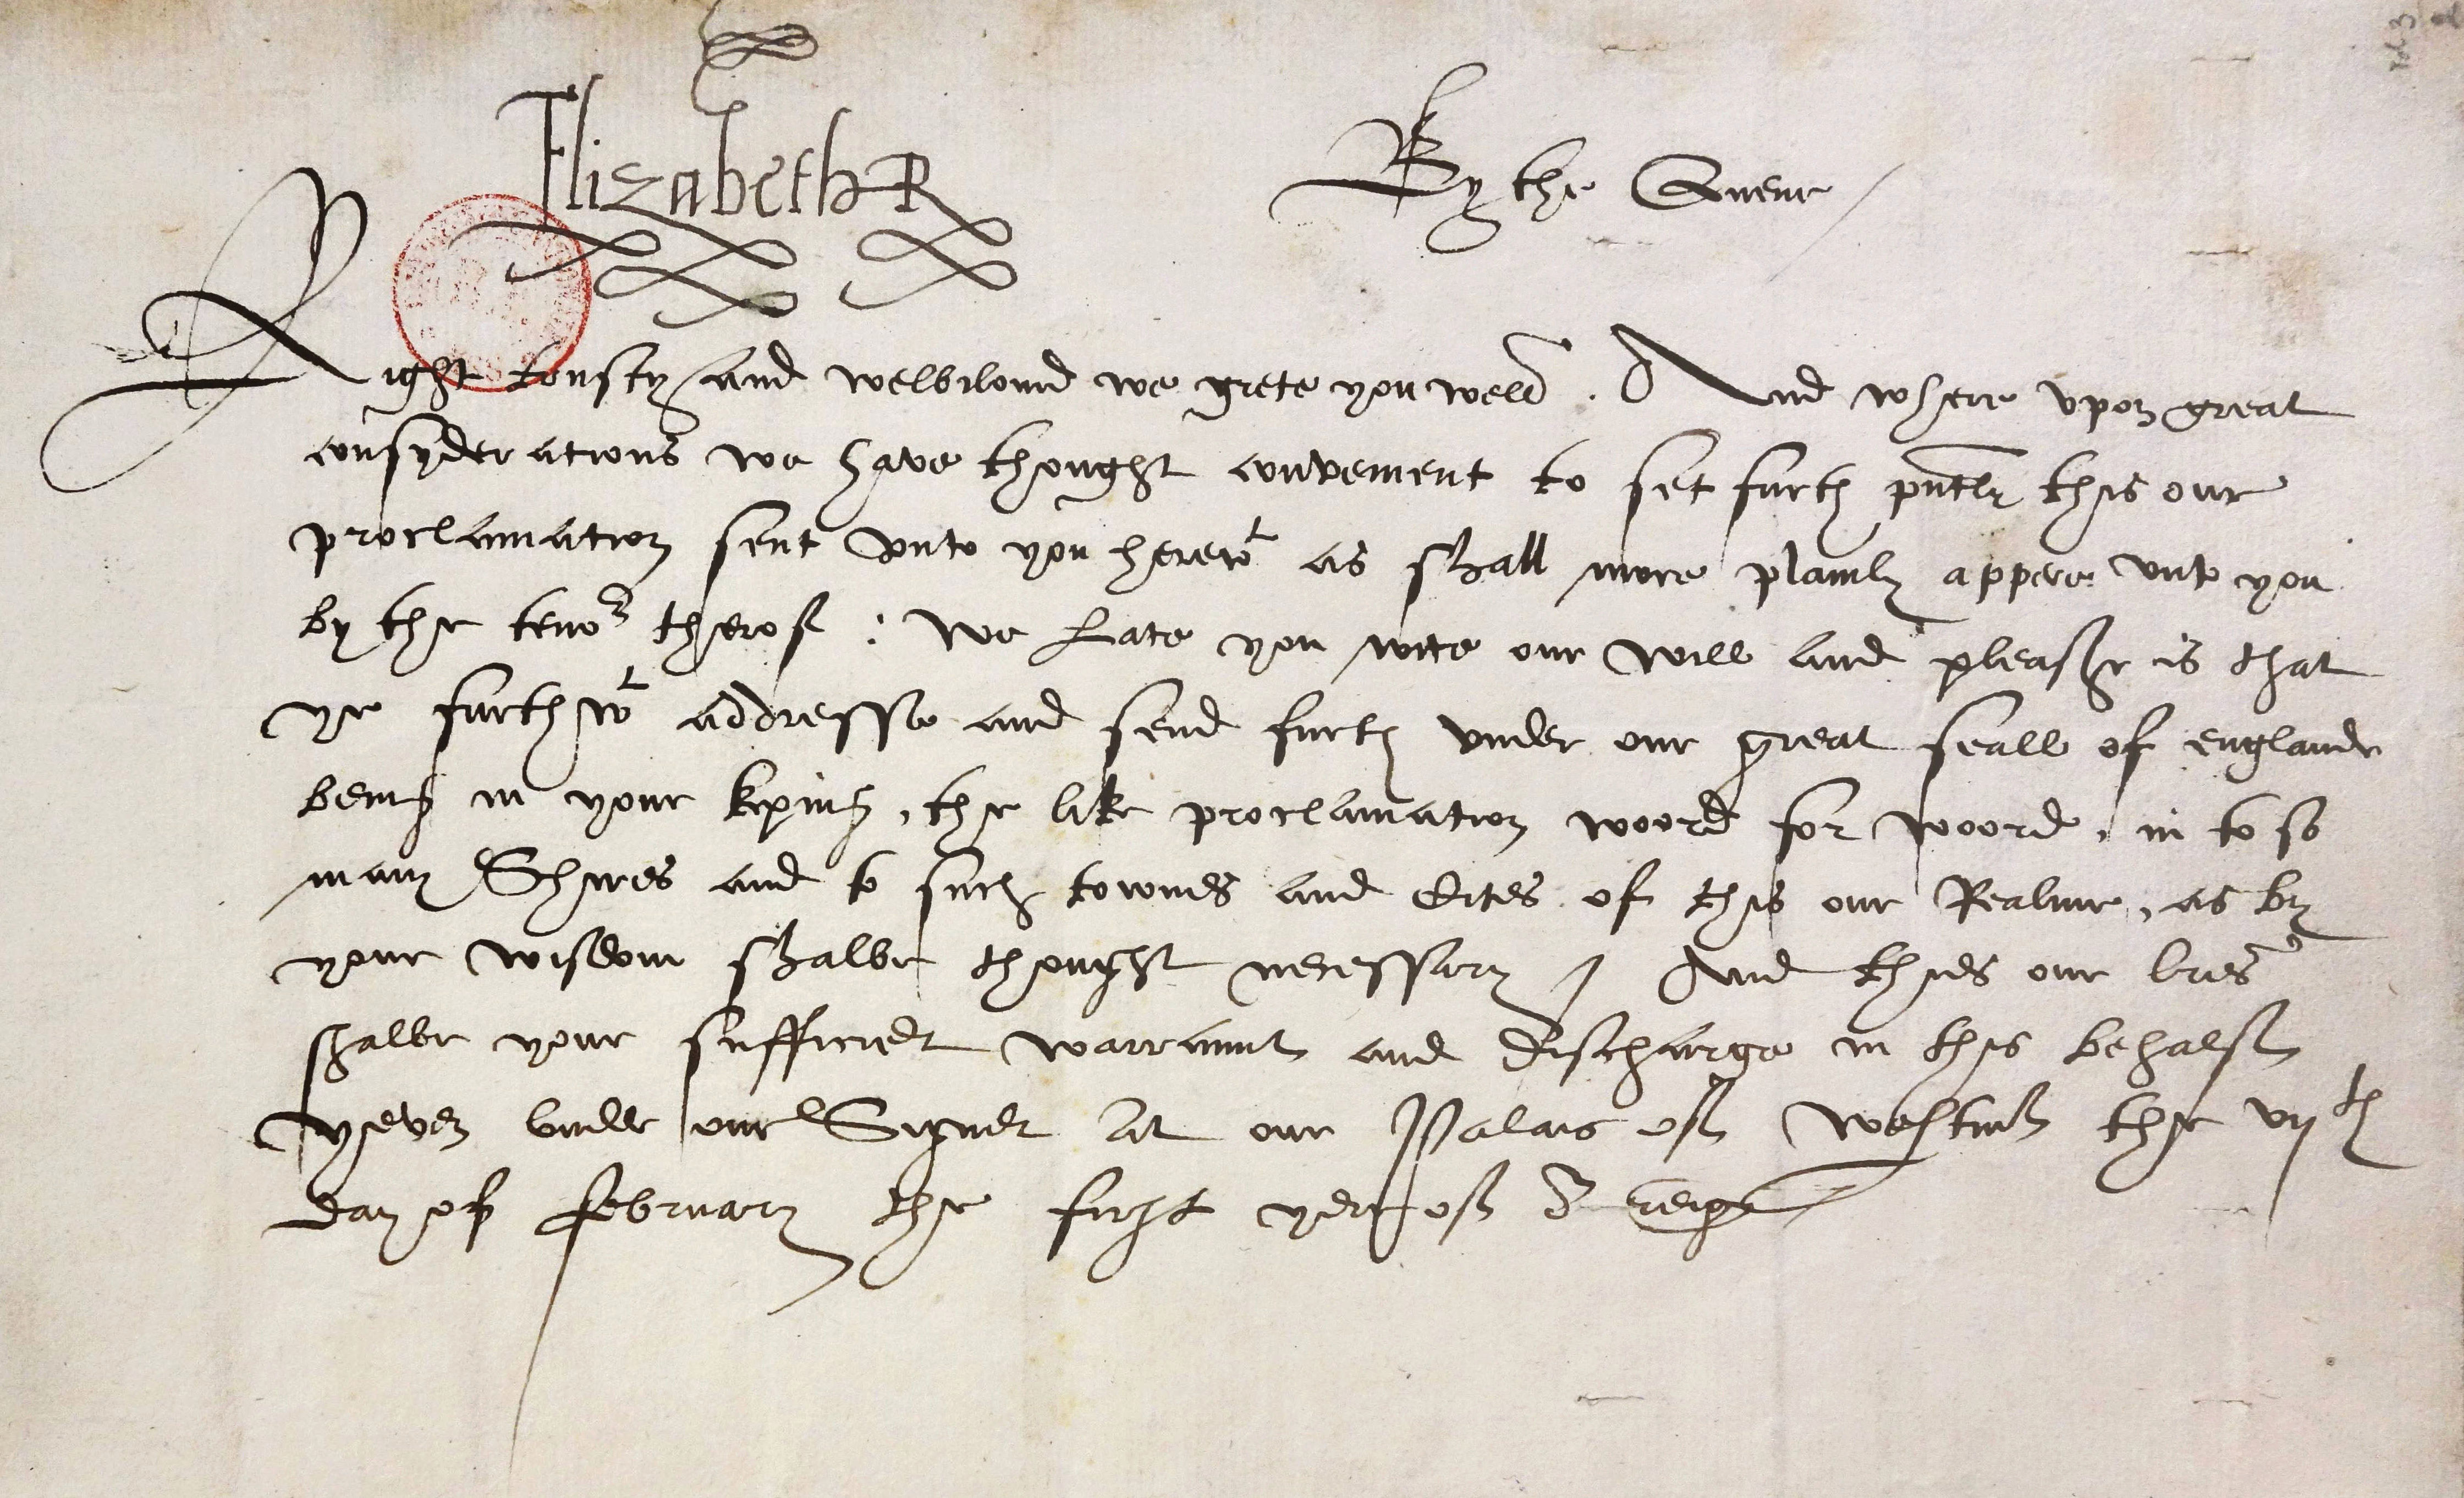 Elizabeth R
By the Quene
Right trusty and welbiloved we grete you well. And where upon great
consyderations we have thought convenient to set furth pntly this our
proclamation sent unto you herewt as shall more plainly appere unto you
by the tenor therof : We Late you wite our will and pleasur is that
ye furthwt addresse and send furth under our great seall of englande
being in your keping, the like proclamation woord for woord, in to so
many Shires and to such townes and Cites of this our Realme, as by
your wisdom shalbe thought necessary / And thies our lres
shalbe your sufficient warraunt and discharge in this behalf
yeven under our Signet at our Palais of Westmr the vijth
day of February the first yere of or reign